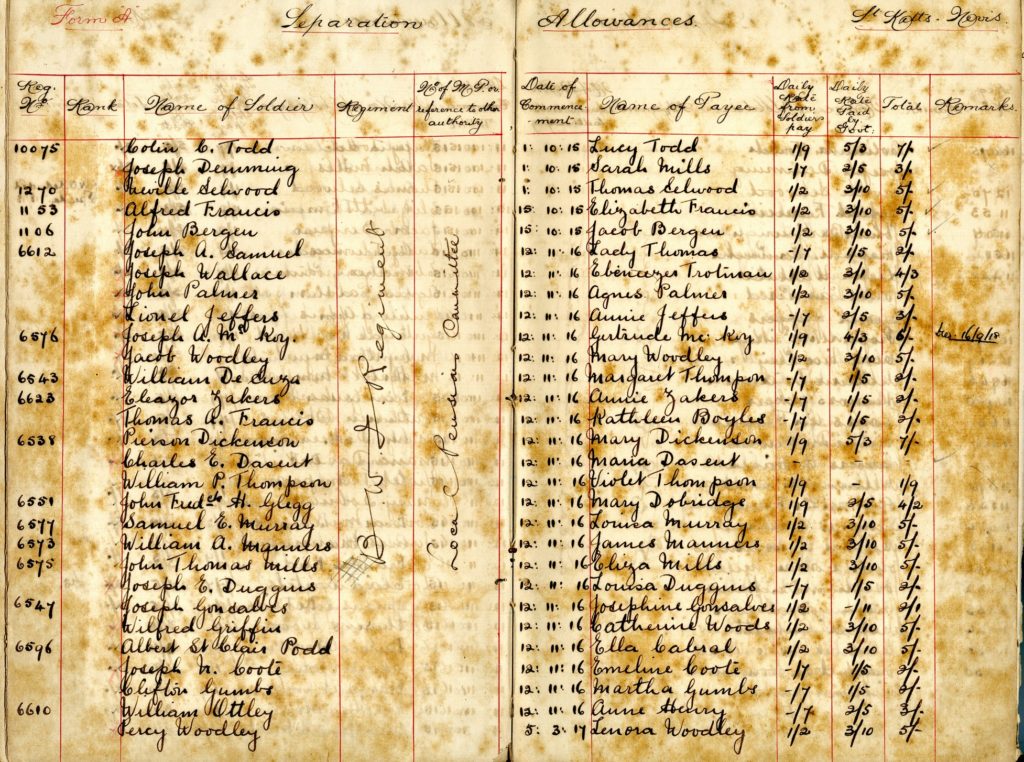 Form A Separation Allowances. St Kitts-Nevis.
Reg. No. Rank Name of Soldier Regiment No of M.P. or reference to other authority Date of Commence-ment Name of Payee Daily Rate from Soldiers pay Daily Rate Paid by Govt. Total Remarks.
10075 Colin C. Todd 1: 10: 15 Lucy Todd 1/9 5/3 7/-
Joseph Demming 1: 10: 15 Sarah Mills -/7 2/5 3/-
1270 Neville Selwood 1: 10: 15 Thomas Selwood 1/2 3/10 5/-
1153 Alfred Francis 15: 10: 15 Elizabeth Francis 1/2 3/10 5/-
1106 John Bergen 15: 10: 15 Jacob Bergen 1/2 3/10 5/-
6612 Joseph A. Samuel 12: 11: 16 Lady Thomas -/7 1/5 2/-
Joseph Wallace 12: 11: 16 Ebeneezer Trotman 1/2 3/1 4/3
John Palmer 12: 11: 16 Agnes Palmer 1/2 3/10 5/-
Lionel Jeffers 12: 11: 16 Annie Jeffers -/7 2/5 3/-
6576 Joseph A. Mc Koy. 12: 11: 16 Gertrude Mc Koy 1/9 4/3 6/- 16/9/18
Jacob Woodley 12: 11: 16 Mary Woodley 1/2 3/10 5/-
6543 William De Cuza 12: 11: 16 Margaret Thompson -/7 1/5 2/-
6623 Eleazor Zakers 12: 11: 16 Annie Zakers -/7 1/5 2/-
Thomas A. Francis 12: 11: 16 Kathleen Boyles -/7 1/5 2/-
6538 Pierson Dickenson 12: 11: 16 Mary Dickenson 1/9 5/3 7/-
Charles E. Dasent 12: 11: 16 Maria Dasent - - -
William P. Thompson 12: 11: 16 Violet Thompson 1/9 - 1/9
6551 John Fredck H. Glegg 12: 11: 16 Mary Dobridge 1/9 2/5 4/2
6577 Samuel E. Murray 12: 11: 16 Louisa Murray 1/2 3/10 5/-
6573 William A. Manners 12: 11: 16 James Manners 1/2 3/10 5/-
6575 John Thomas Mills 12: 11: 16 Eliza Mills 1/2 3/10 5/-
Joseph E. Duggins 12: 11: 16 Louisa Duggins -/7 1/5 2/-
6547 Joseph Gonsalves 12: 11: 16 Josephine Gonsalves 1/2 -/11 2/1
Wilfred Griffin 12: 11: 16 Catherine Woods 1/2 3/10 5/-
6596 Albert St Clair Podd 12: 11: 16 Ella Cabral 1/2 3/10 5/-
Joseph N. Coote 12: 11: 16 Emeline Coote -/7 1/5 2/-
Clifton Gumbs 12: 11: 16 Martha Gumbs -/7 1/5 2/-
6610 William Ottley 12: 11: 16 Anne Henry -/7 2/5 3/-
Percy Woodley 5: 3: 17 Lenora Woodley 1/2 3/10 5/-
B. W. I. Regiment
Local Pensions Committee